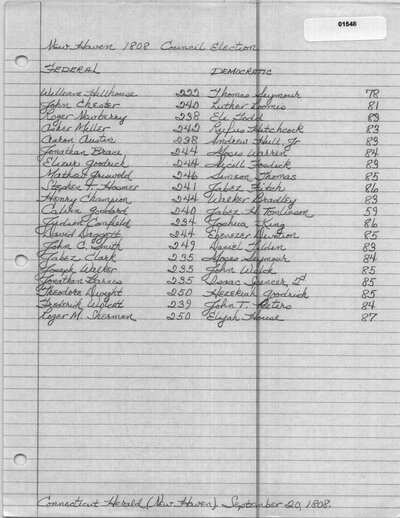 01548
New Haven 1808 Council Election
FEDERAL DEMOCRATIC
William Hillhouse 222 Thomas Seymour 78
John Chester 240 Luther Loomis 81
Roger Newberry 238 Eli Todd 83
Asher Miller 242 Rufus Hitchcock 83
Aaron Austin 238 Andrew Hull, Jr 83
Jonathan Brace 244 Moses Warren 84
Elizur Goodrich 244 Nicoll Fosdick 83
Mathew Griswold 246 Simeon Thomas 85
Stephen T. Hosmer 241 Jabez Fitch 86
Henry Champion 244 Walker Bradley 83
Calvin Goddard 240 Jabez H. Tomlinson 59
Judson Canfield 234 Joshua King 86
David Daggett 244 Ebenezer Devotion 85
John C. Smith 249 Daniel Tilden 83
Jabez Clark 235 Moses Seymour 84
Joseph Walker 235 John Welch 85
Jonathan Barnes 235 Isaac Spencer, 2d 85
Theodore Dwight 250 Hezekiah Goodrich 85
Frederick Wolcott 239 John T. Peters 84
Roger M. Sherman 250 Elijah House 87
Connecticut Herald (New Haven). September 20, 1808.